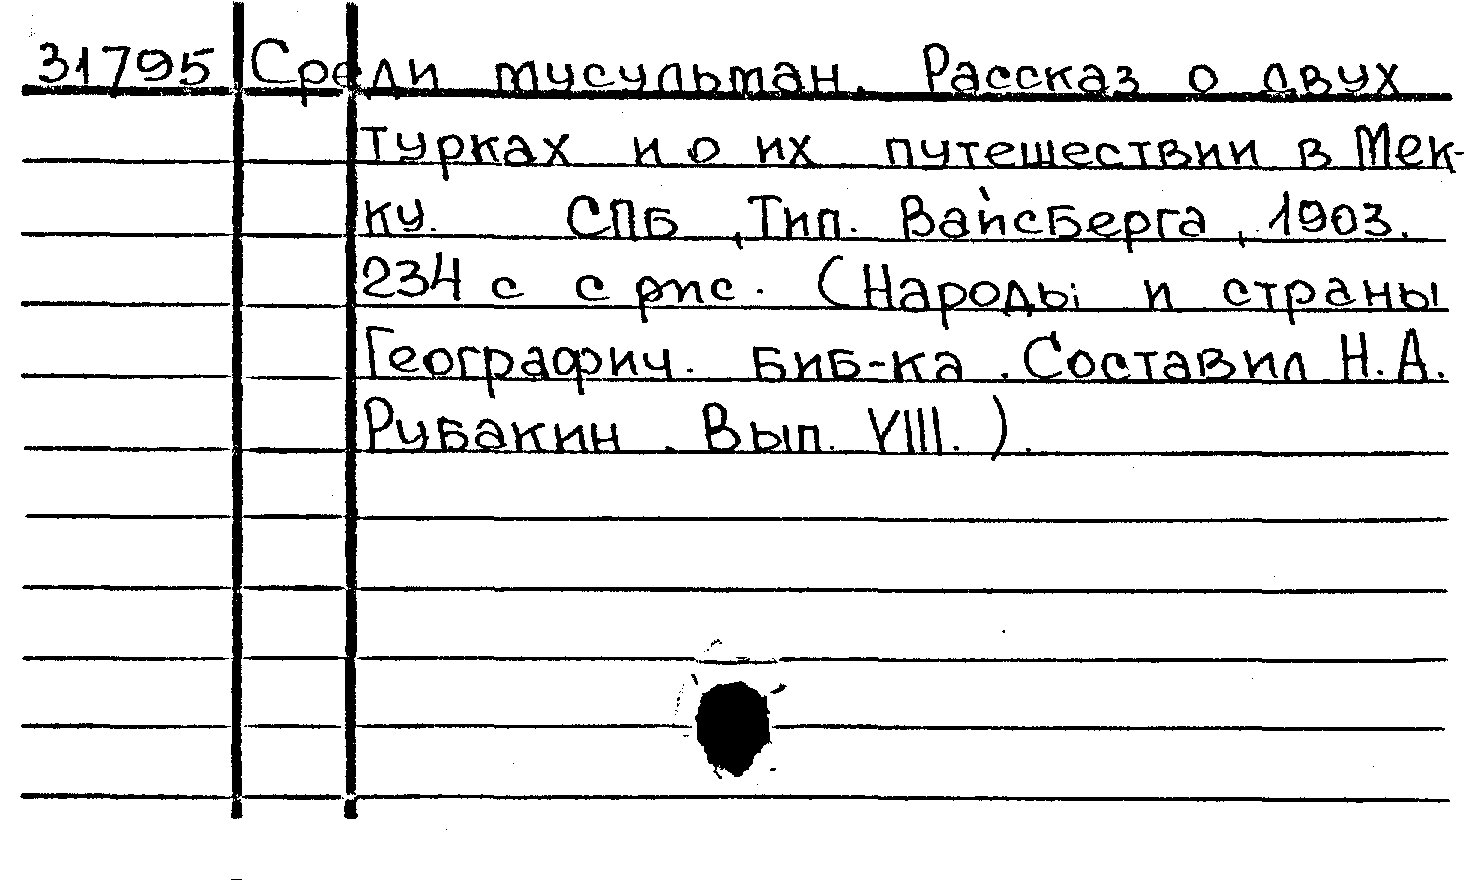 31795 Среди мусульман. Рассказ о двух
турках и о их путешествии в Мек-
ку. СПБ, Тип. Вайсберга, 1903.
234 с с рис. (Народы и страны
Географич. биб-ка. Составил Н.А.
Рубакин. Вып. VIII.).